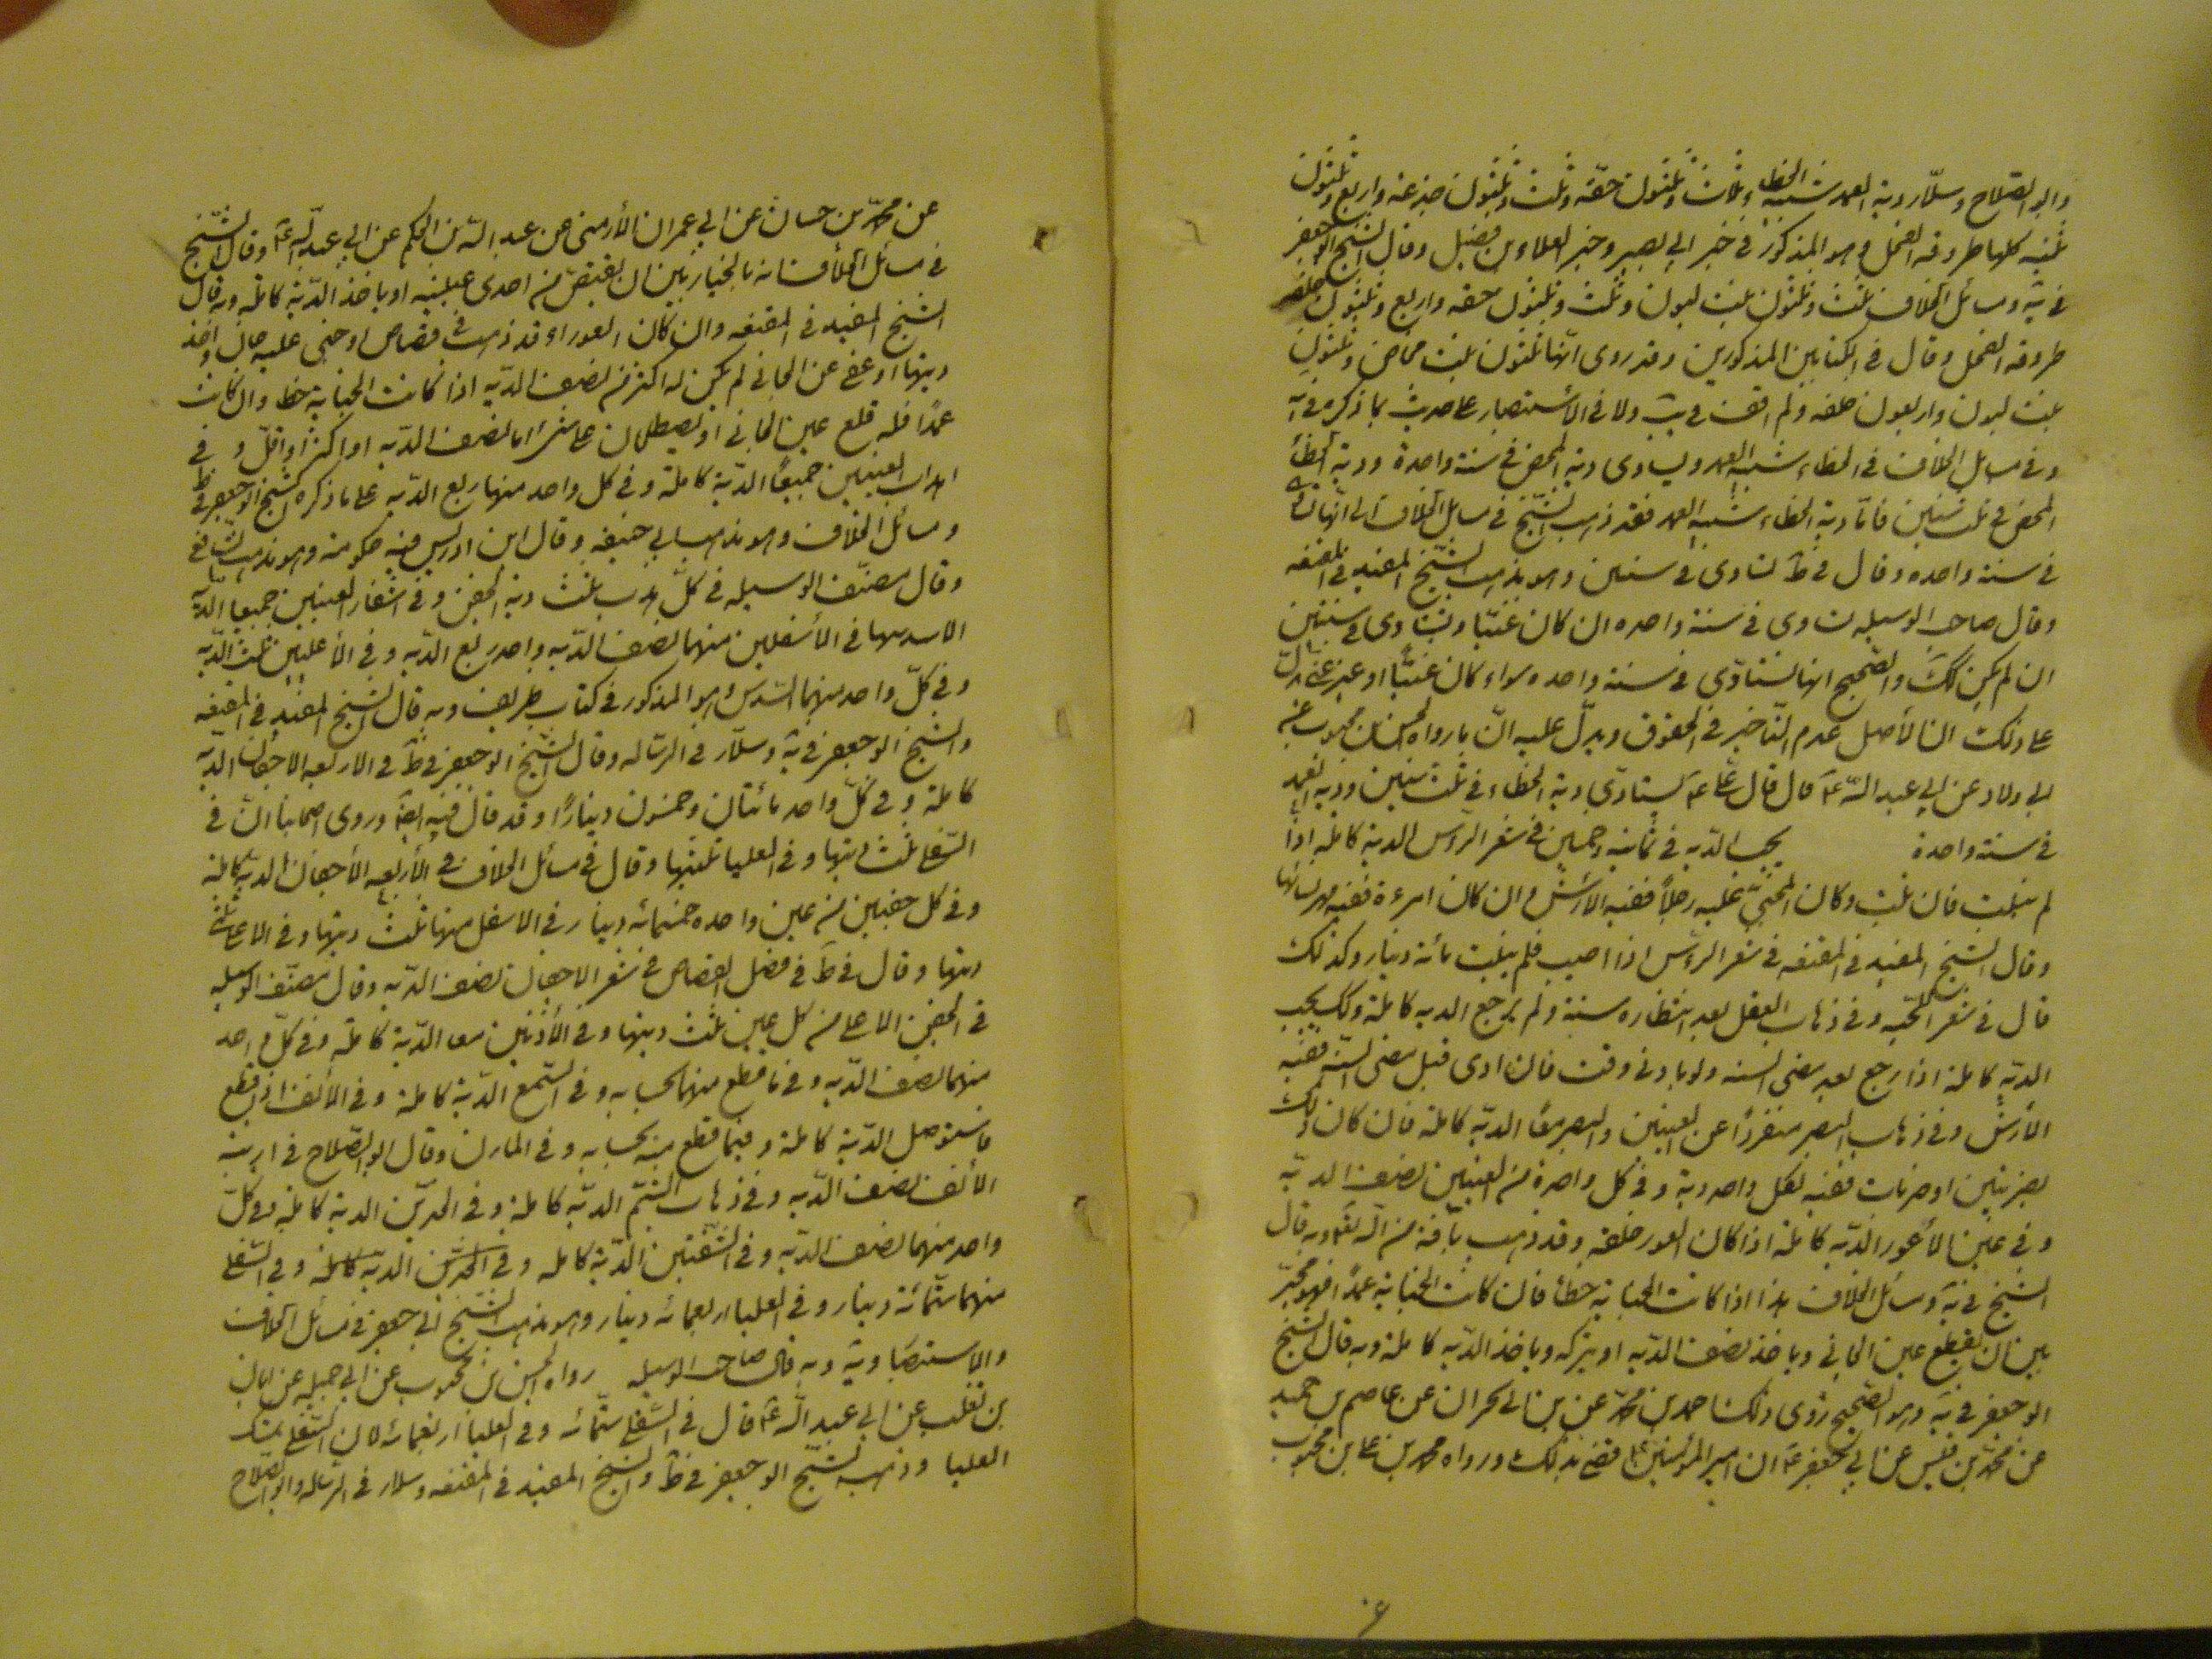 وابو الصّلاح وسلّار دية العمد شبيه الخطاء ثلاث وثلثون حقّة وثلث وثلثون جذعة واربع وثلثون
ثنيه كلها طروقه الفحل وهو المذكور في خبر ابي بصير وخبر العلاء بن فضيل وقال الشيخ ابو جعفر
في يه ومسائل الخلاف ثلث وثلثون بنت لبون وثلث وثلثون حقه واربع وثلثون خلفه
طروقه الفحل وقال في الكتابين المذكورين وقد روى انّها ثلثون بنت مخاض وثلثون
بنت لبون واربعون خلفه ولم اقف في يب ولا في الأستبصار على حديث بما ذكره في يه
وفي مسايل الخلاف في الخطاء شبيه العمد ويساوى دية المحض في سنة واحدة ودية الخطأ
المحض في ثلث سنين فامّا دية الخطاء شبيه العمد فقد ذهب الشّيخ في مسايل الخلاف الى انّها
في سنة واحده وقال في ط تستادى في سنتين وهو مذهب الشّيخ المفيد في المقنعه
وقال صاحب الوسيله تستادى في سنة واحده ان كان غنيّا وتستادى في سنتين
ان لم يكن كك والصّحيح انها تستادّى في سنة واحده سواء كان غنيّاً او غير غنى
على ذلك ان الأصل عدم التّاخير في الحقوق ويدلّ عليه انّ ما رواه الحسن بن محبوب عن
ابي ولاد عن ابي عبد الله ع قال قال علىّ ع تستادّى دية الخطاء في ثلث سنين ودية العمد
في سنة واحدة يجب الدّيه في ثمانيه وخمسين في شعر الرّوس الدية كاملة اذا
لم ينبت فان نبت وكان المجنيّ عليه رجلًا ففيه الارش وان كان امرءة ففيه مهر نسائها
وقال الشّيخ المفيد في المقنعه في شعر الروس اذا اصيب فلم ينبت مائة دينار وكذلك
قال في شعر اللّحيه وفي ذهاب العقل بعد انتظاره سنة ولم يرجع الديه كاملة وكك يجب
الديّه كاملة اذا رجع بعد مضى السنه ولو عاد في وقت فان ادى قبل مضى السّنة ففيه
الأرش وفي ذهاب البصر منفردًا عن العينين والبصر معًا الديّه كاملة فان كان ذلك
بضربتين او ضربات ففيه لكل واحد دية وفي كل واحدة من العينين نصف الديّه
وفي عين الأعور الديّه كاملة اذا كان العور خلقه وقد ذهب بآفة من الله تعا وبه قال
الشّيخ في يه ومسائل الخلاف هذا اذا كانت الجناية خطأ فان كانت الجناية عمدًا فهو مخيّر
بين ان يقطع عين الجاني وياخذ نصف الديّه او يتركه وياخذ الديّه كاملة وبه قال الشّيخ
ابو جعفر في يه وهو الصّحيح روى ذلك احمد بن محمّد عن بن ابي نجران عن عاصم بن حميد
عن محمّد بن قيس عن ابي جعفر ع ان امير المؤمنين ع قضى بذلك ورواه محمد بن على بن محبوب
عن محمّد بن حسان عن ابي عمران الأرمنى عن عبد الله بن الحكم عن ابي عبد الله ع وقال الشّيخ
في مسائل الخلاف انه بالخيار بين ان يقتصّ من احدى عينيه او ياخذ الدّية كاملة وبه قال
الشّيخ المفيد في المقنعه وان كان العوراء قد ذهبت في قصاص او جنى عليه جان واخذ
ديتها او عفى عن الجاني لم يكن له اكثر من نصف الديّه اذا كانت الجناية خطا وان كانت
عمدًا فله قلع عين الجاني او يصطلحان على شئ امّا نصف الديّه او اكثر او اقلّ و في
اهداب العينين جميعًا الدّية كاملة وفي كل واحد منهما ربع الدّيه على ما ذكره الشيخ ابو جعفر في ط
ومسائل الخلاف وهو مذهب ابي حنيفه وقال ابن ادريس فيه حكومة وهو مذهب الشّافعى
وقال مصنّف الوسيله في كلّ هدب ثلث دية الجفن وفي اشفار العينين جميعا الديّه
الاسدسها في الأسفلين منهما نصف الدّيه واحد ربع الدّيه وفي الأعليين ثلث الدّيه
وفي كلّ واحد منهما السّدس وهو المذكور في كتاب ظريف وبه قال الشّيخ المفيد في المقنعه
والشّيخ ابو جعفر في يه وسلّار في الرّساله وقال الشّيخ ابو جعفر في ط في الاربعه الاجفان الدّيه
كاملة وفي كلّ واحد مائتان وخمسون دينارًا وقد قال فيه ايضًا وروى اصحابنا انّ في
السّفلى ثلث ديتها وفي العليا ثلثيها وقال في مسائل الخلاف في الأربعه الأجفان الديّة كاملة
وفي كل جفنين من عين واحده خمسمائه دينار في الاسفل منها ثلث ديتها وفي الاعلى ثلثى
ديتها وقال في ط في فصل القصاص في شعر الاجفان نصف الدّيه وقال مصنّف الوسيله
في الجفن الاعلى من كل عين ثلث ديتها وفي الأذنين معا الدّية كاملة وفي كلّ واحد
منهما نصف الدّيه وفي ما قطع منهما بحسابه وفي السّمع الدّية كاملة وفي الأنف اذا قطع
فاستوصل الدّية كاملة وفيما قطع منه بحسابه وفي المارن وقال ابو الصّلاح في ارنبة
الأنف نصف الدّيه وفي ذهاب الشّمّ الديّة كاملة وفي الخدّين الدية كاملة وفي كلّ
واحد منهما نصف الدّيه وفي الشّفتين الدّية كامله وفي الخدّين الديّة كاملة وفي السّفلى
منهما ستّمائة دينار وفي العليا اربعمائه دينار وهو مذهب الشّيخ ابي جعفر في مسائل الخلاف
والاستبصار ويه وبه قال صاحب الوسيله رواه الحسن بن محبوب عن ابي جميله عن ابان
بن تغلب عن ابي عبد الله ع قال في السّفلى ستمائه وفي العليا اربعمائه لان السّفلى تمسك
العليا وذهب الشّيخ ابو جعفر في ط والشّيخ المفيد في المقنعه وسلار في الرساله وابو الصّلاح